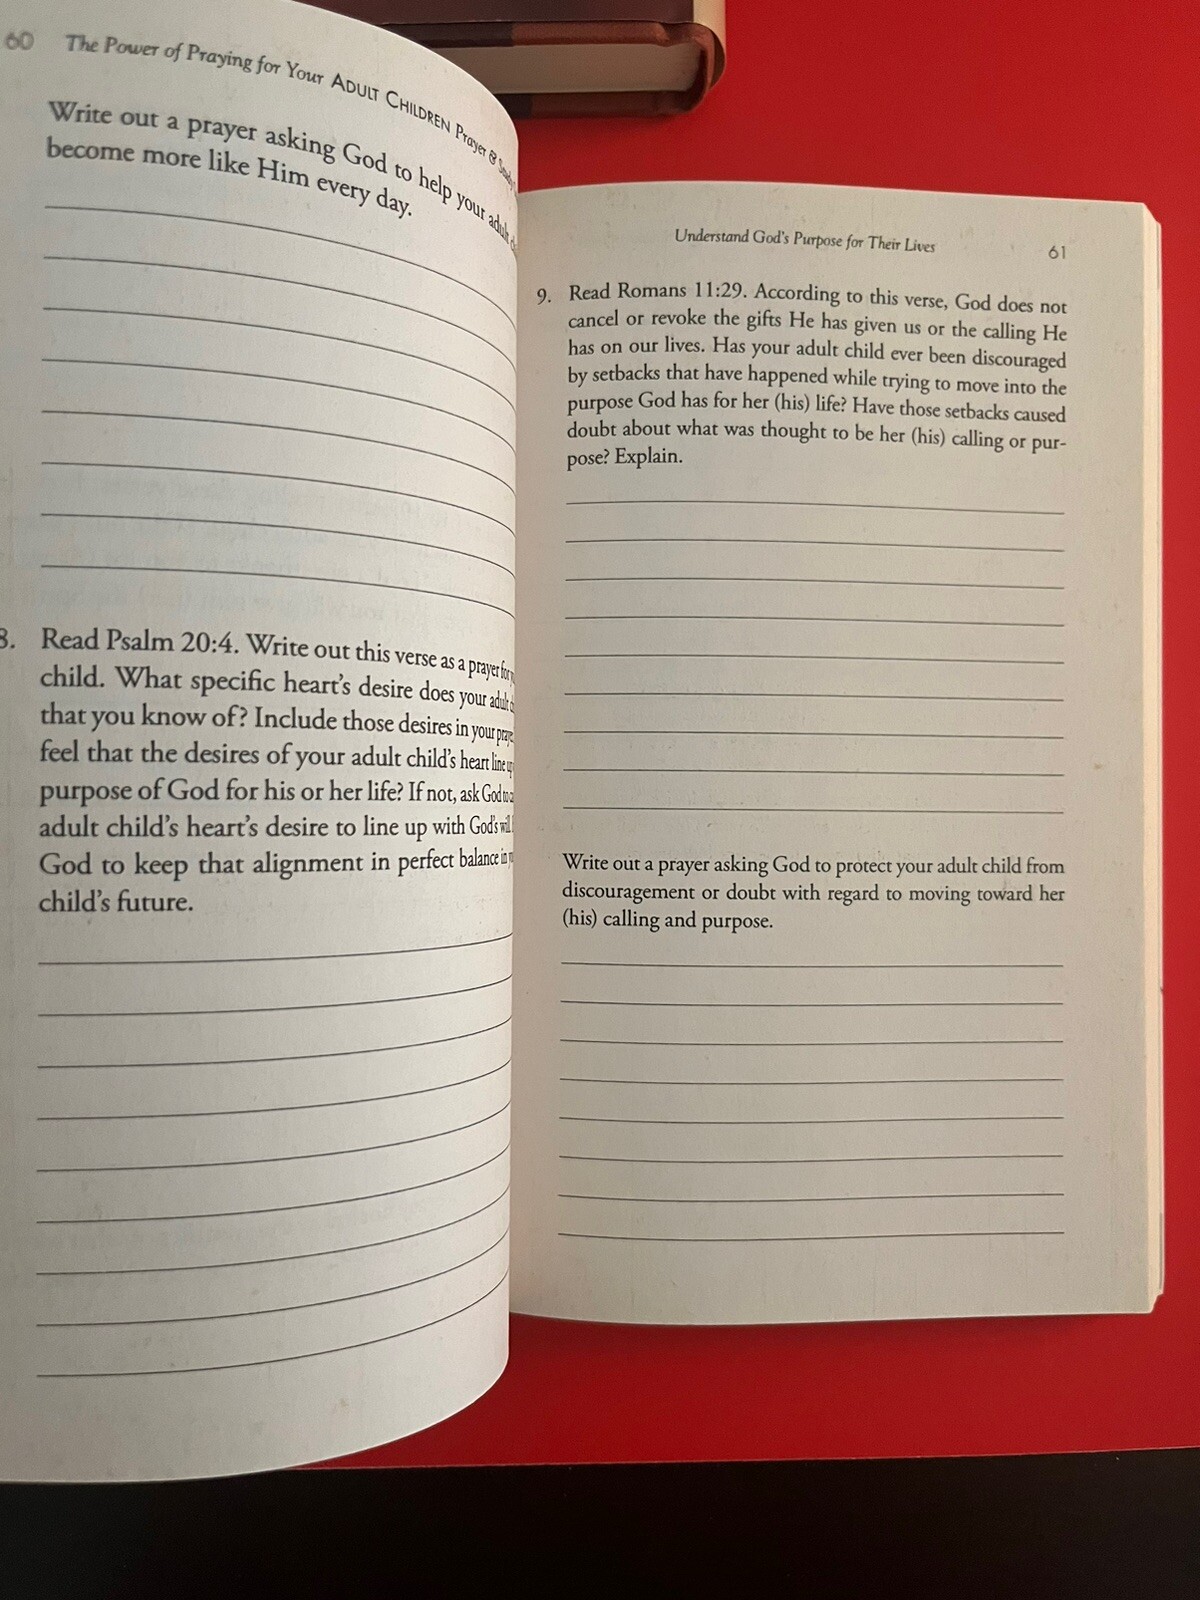 60 The Power of Praying for Your ADULT CHILDREN Prayer & Study
Write out a prayer asking God to help your adult
become more like Him every day.
8. Read Psalm 20:4. Write out this verse as a prayer for
child. What specific heart's desire does your adult
that you know of? Include those desires in your
feel that the desires of your adult child's heart line
purpose of God for his or her life? If not, ask God to
adult child's heart's desire to line up with God's will.
God to keep that alignment in perfect balance in
child's future.
Understand God's Purpose for Their Lives 61
9. Read Romans 11:29. According to this verse, God does not
cancel or revoke the gifts He has given us or the calling He
has on our lives. Has your adult child ever been discouraged
by setbacks that have happened while trying to move into the
purpose God has for her (his) life? Have those setbacks caused
doubt about what was thought to be her (his) calling or pur-
pose? Explain.
Write out a prayer asking God to protect your adult child from
discouragement or doubt with regard to moving toward her
(his) calling and purpose.